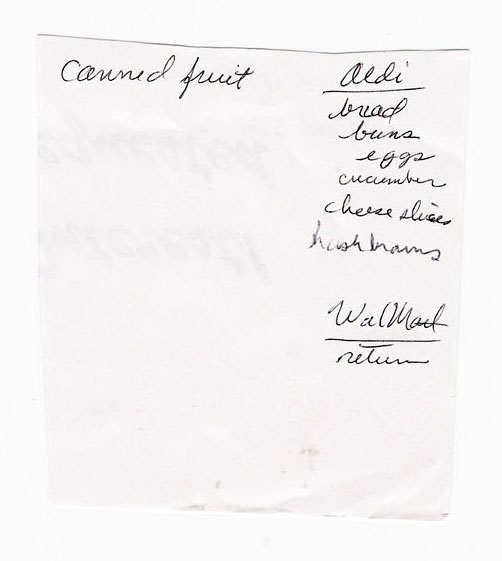 Canned fruit
Aldi
bread
buns
eggs
cucumber
cheese slices
hashbrowns
WalMart
return